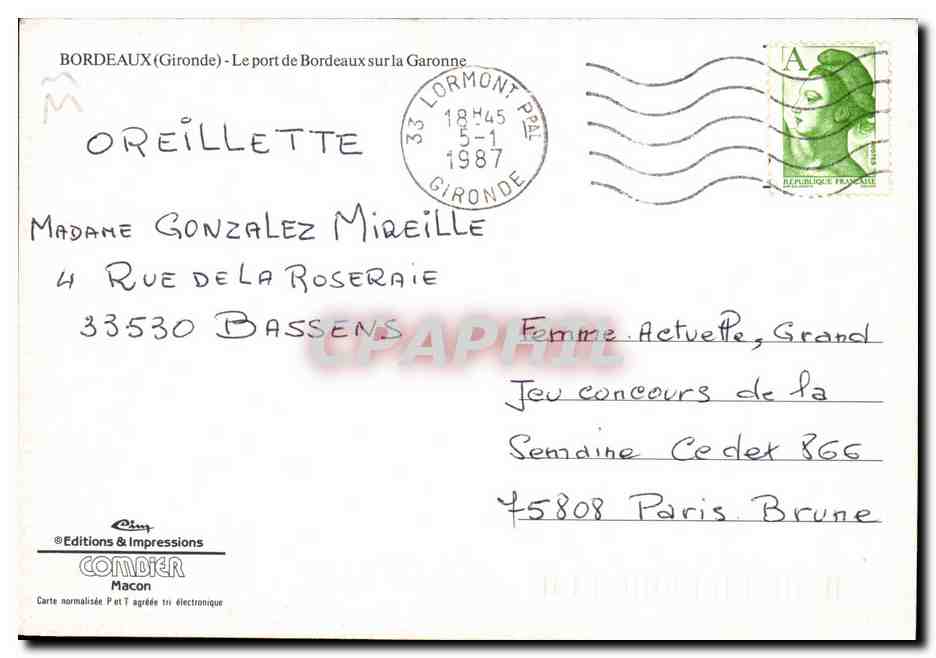 BORDEAUX (Gironde) - Le port de Bordeaux sur la Garonne
33 LORMONT PPAL
18H45
5-1
1987
GIRONDE
A
POSTES
RÉPUBLIQUE FRANÇAISE
OREILLETTE
MADAME GONZALEZ MIREILLE
4 RUE DE LA ROSERAIE
33530 BASSENS
CPAPHIL
Femme Actuelle, Grand
Jeu concours de la
Semaine Cedex 866
75808 Paris Brune
Cim
©Editions & Impressions
COMBIER
Macon
Carte normalisée P et T agréée tri électronique